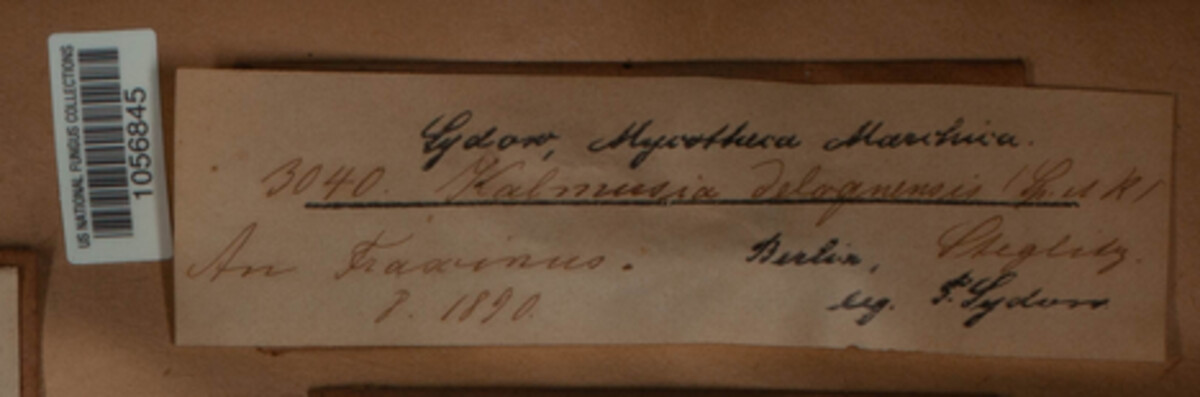 US NATIONAL FUNGUS COLLECTIONS
1056845
Sydow, Mycotheca Marchica.
3040. Kalmusia delognensis (Sp. et R)
An Fraxinus. Berlin, Steglitz.
8. 1890. leg. P. Sydow